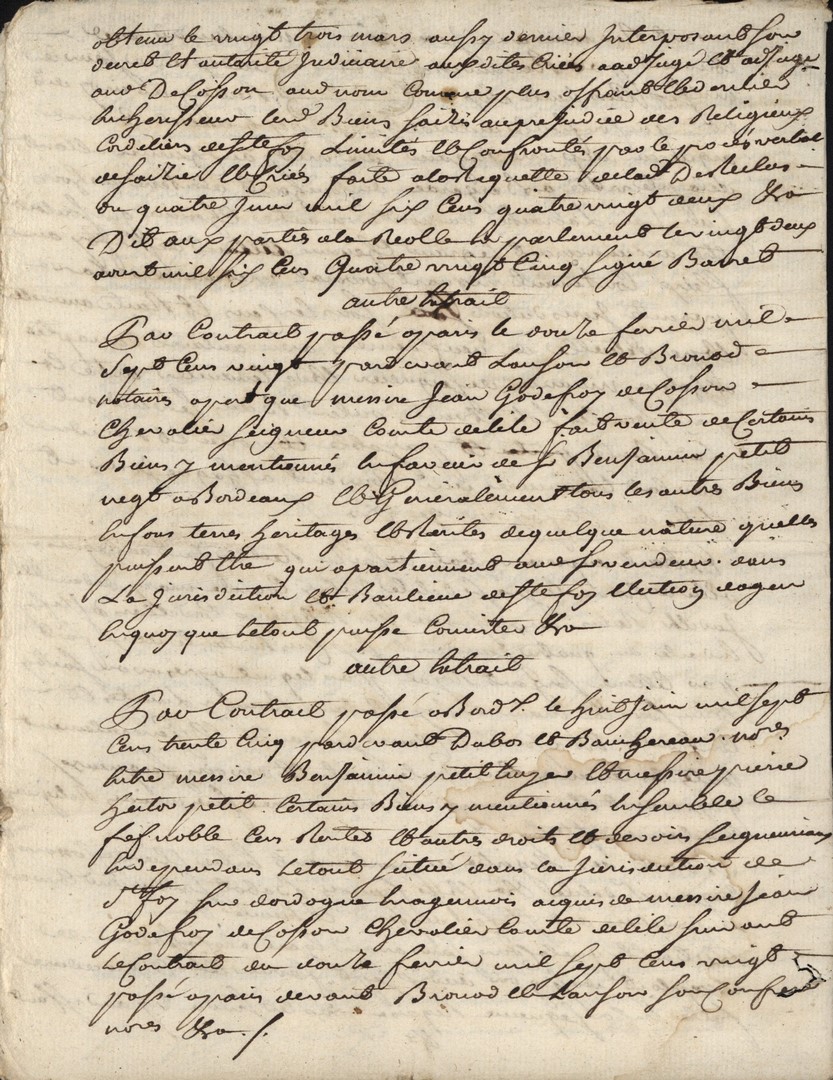 obtenu le vingt trois mars aussy dernier Interposant son
decret et autorité Judiciaire ausdites criées a adjugé et adjuge
aud DeCosson aud nom comme plus offrant et dernier
encherisseur lesd Biens saisis au prejudice des Religieux
Cordeliers de Ste foy Limités et Confrontés par le procés verbal
de saizie et criés faite a la Requette de lad DeReclus
du quatre Juin mil six Cens quatre vingt deux &ra
Dit aux parties a la Reolle en parlement le vingt deux
aoust mil six Cens Quatre vingt Cinq signé Barret
autre Extrait
Par Contrait passé a paris le douze fevrier mil
sept Cens vingt pardevant Lanson et Bronod
notaires apert que messire Jean Godefroy de Cosson
Chevalier seigneur Comte de lile fait vente de Certains
Biens y mentionnés en faveur de Sr Benjamin petit
negt a Bordeaux et Generalement tous les autres Biens
en fons terres heritages et Rantes de quelque nature quelles
puissent etre qui apartiennent aud sr vendeur dans
La Jurisdiction et Banlieue de Ste foy Election dagen
en quoy que le tout puisse Consister &ra
autre Extrait
Par Contrait passé a Bord.x le huit Juin mil sept
Cens trente Cinq pardevant Dubos et Banchereau nores
entre messire Benjamin petit et messire pierre
hector petit Certains Biens y mentionnés ensemble le
fef noble Cens Rentes et autres droits et devoirs seigneuriaux
en dependans le tout situé dans la Jurisdiction de
Ste foy sur dordogne en agennois aquis de messire Jean
Godefroy de Cosson Chevalier Comte de lile suivant
le Contrait du douze fevrier mil sept Cens vingt
passé a paris devant Bronod et Lanson son Confrere
nores &ra ./.